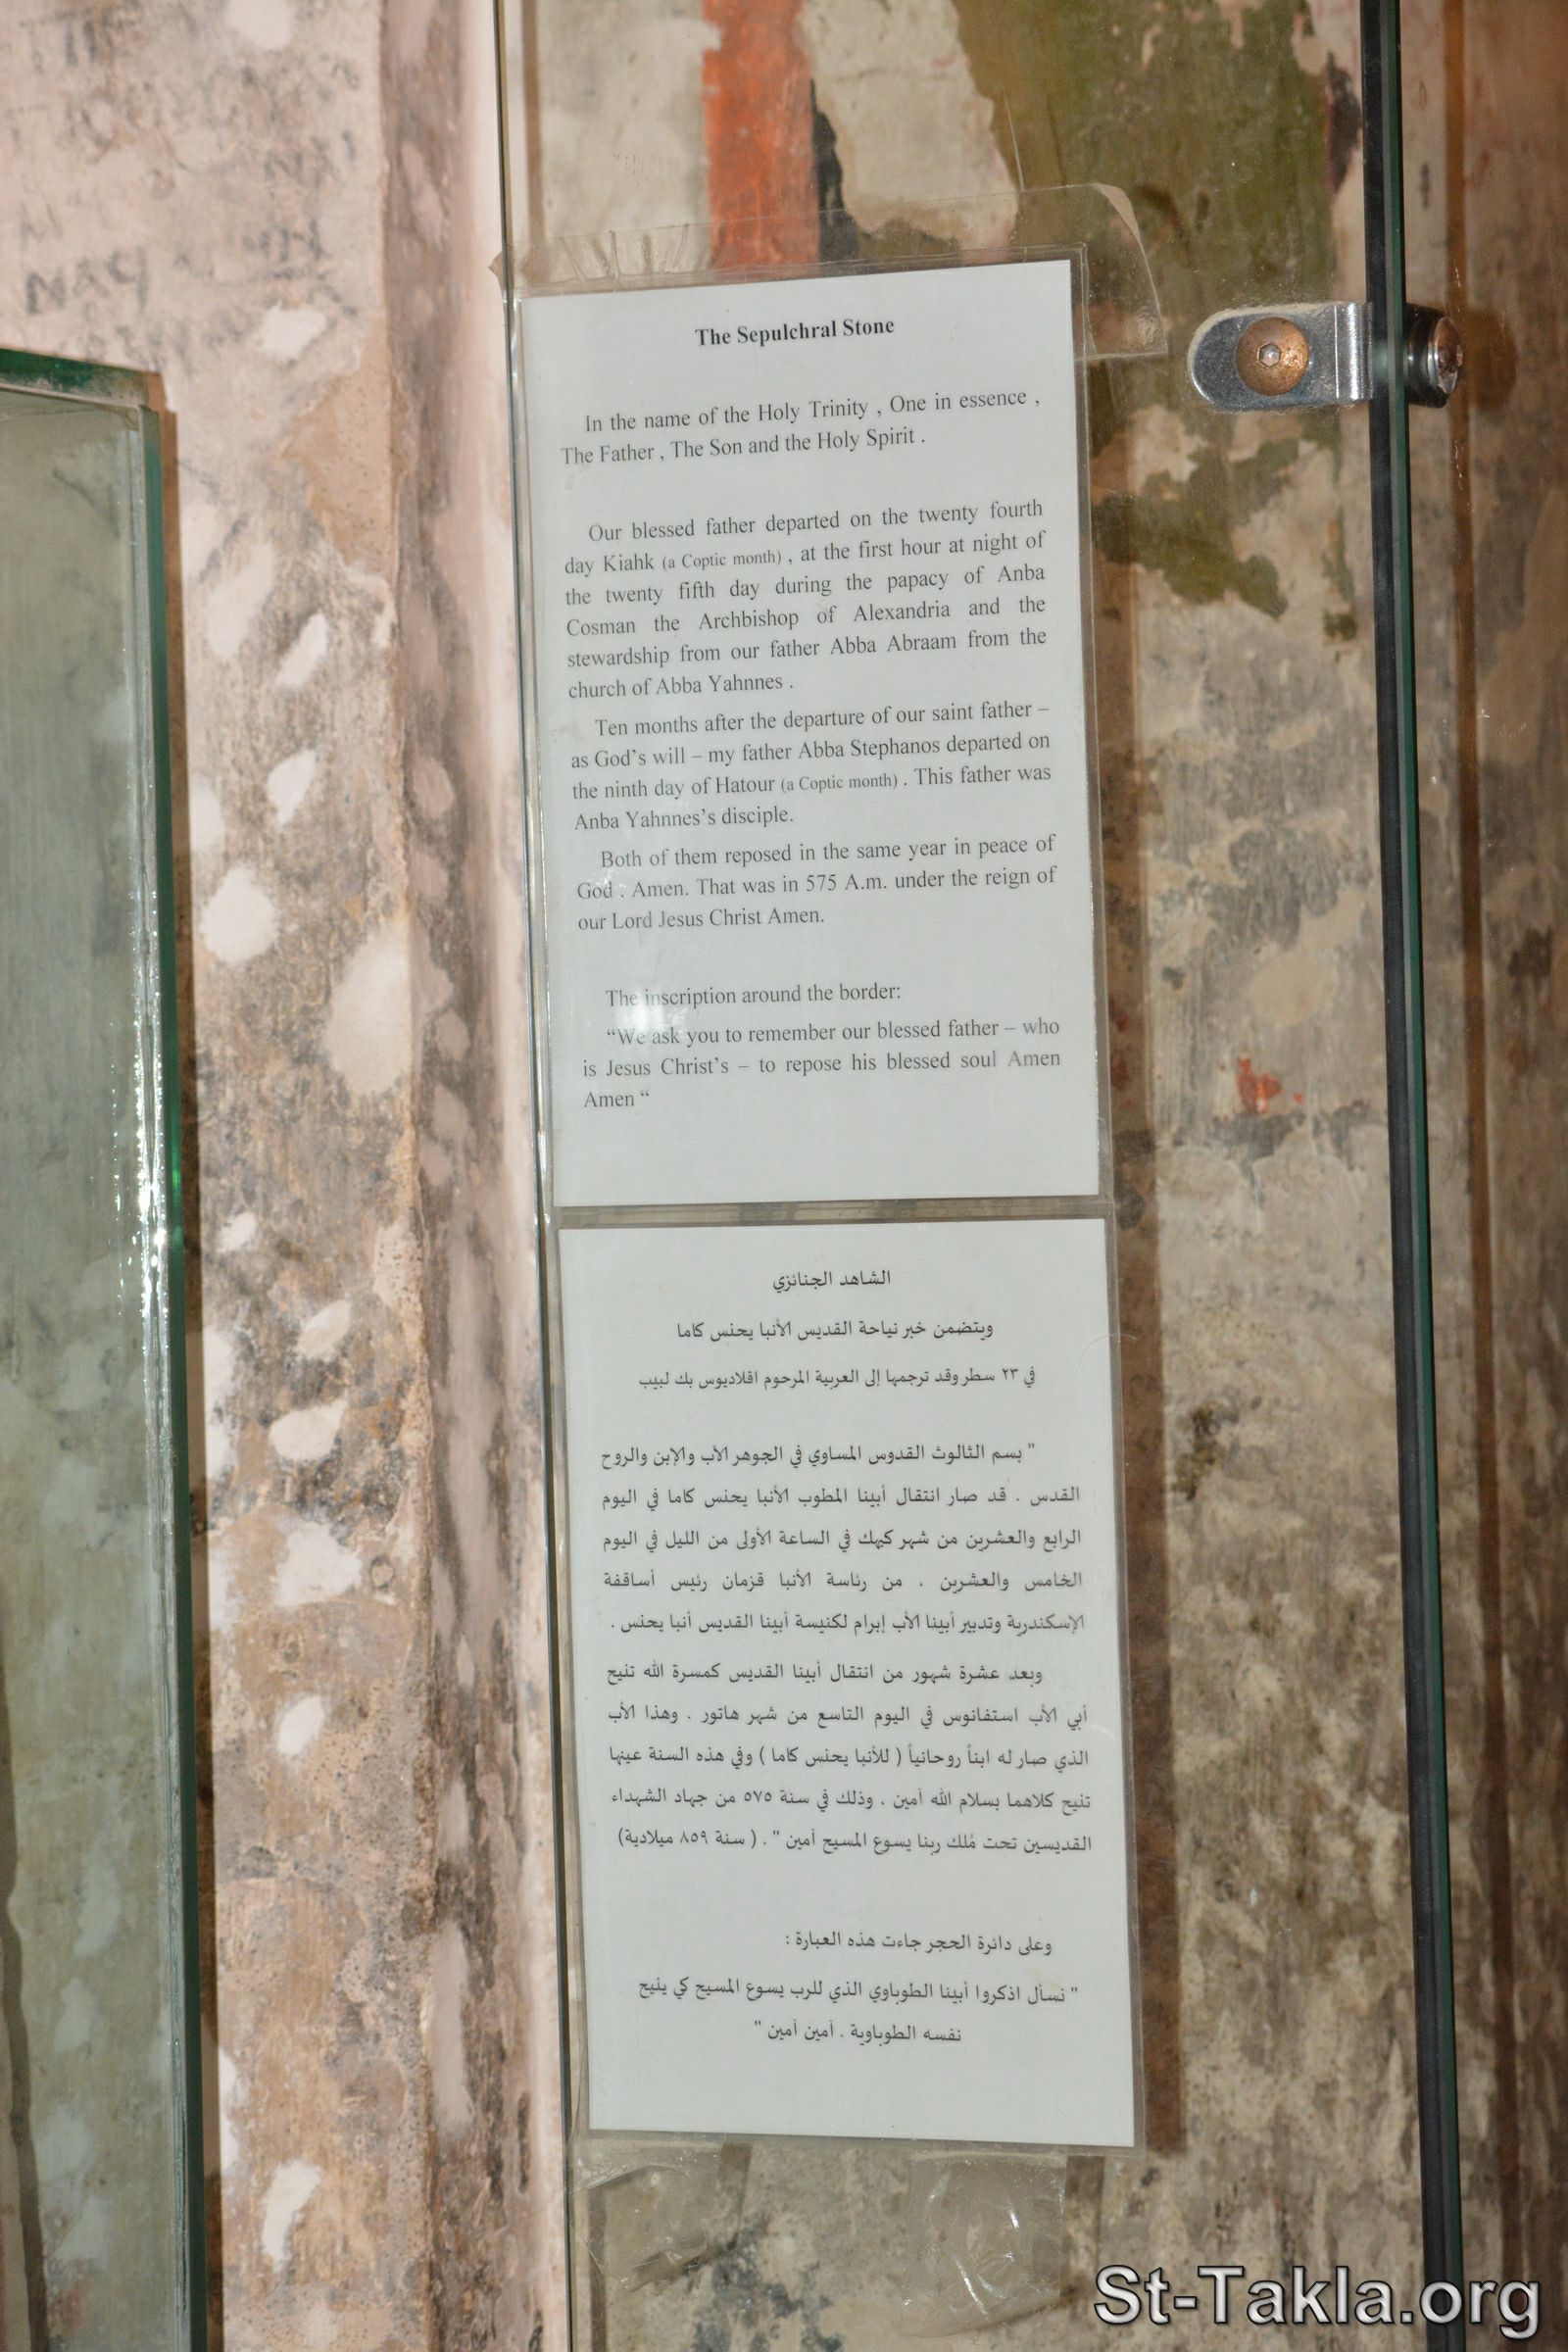 The Sepulchral Stone
In the name of the Holy Trinity , One in essence ,
The Father , The Son and the Holy Spirit .
Our blessed father departed on the twenty fourth
day Kiahk (a Coptic month) , at the first hour at night of
the twenty fifth day during the papacy of Anba
Cosman the Archbishop of Alexandria and the
stewardship from our father Abba Abraam from the
church of Abba Yahnnes .
Ten months after the departure of our saint father –
as God's will – my father Abba Stephanos departed on
the ninth day of Hatour (a Coptic month) . This father was
Anba Yahnnes's disciple.
Both of them reposed in the same year in peace of
God . Amen. That was in 575 A.m. under the reign of
our Lord Jesus Christ Amen.
The inscription around the border:
“We ask you to remember our blessed father – who
is Jesus Christ's – to repose his blessed soul Amen
Amen “
الشاهد الجنائزي
ويتضمن خبر نياحة القديس الأنبا يحنس كاما
في ٢٣ سطر وقد ترجمها إلى العربية المرحوم اقلاديوس بك لبيب
" بسم الثالوث القدوس المساوي في الجوهر الآب والإبن والروح
القدس . قد صار انتقال أبينا المطوب الأنبا يحنس كاما في اليوم
الرابع والعشرين من شهر كيهك في الساعة الأولى من الليل في اليوم
الخامس والعشرين . من رئاسة الأنبا قزمان رئيس أساقفة
الإسكندرية وتدبير أبينا الأب إبرام لكنيسة أبينا القديس أنبا يحنس .
وبعد عشرة شهور من انتقال أبينا القديس كمسرة الله تنيح
أبي الأب استفانوس في اليوم التاسع من شهر هاتور . وهذا الأب
الذي صار له ابناً روحانياً ( للأنبا يحنس كاما ) وفي هذه السنة عينها
تنيح كلاهما بسلام الله آمين . وذلك في سنة ٥٧٥ من جهاد الشهداء
القديسين تحت مُلك ربنا يسوع المسيح آمين " . ( سنة ٨٥٩ ميلادية)
وعلى دائرة الحجر جاءت هذه العبارة :
" نسأل اذكروا أبينا الطوباوي الذي للرب يسوع المسيح كي ينيح
نفسه الطوباوية . آمين آمين "
St-Takla.org